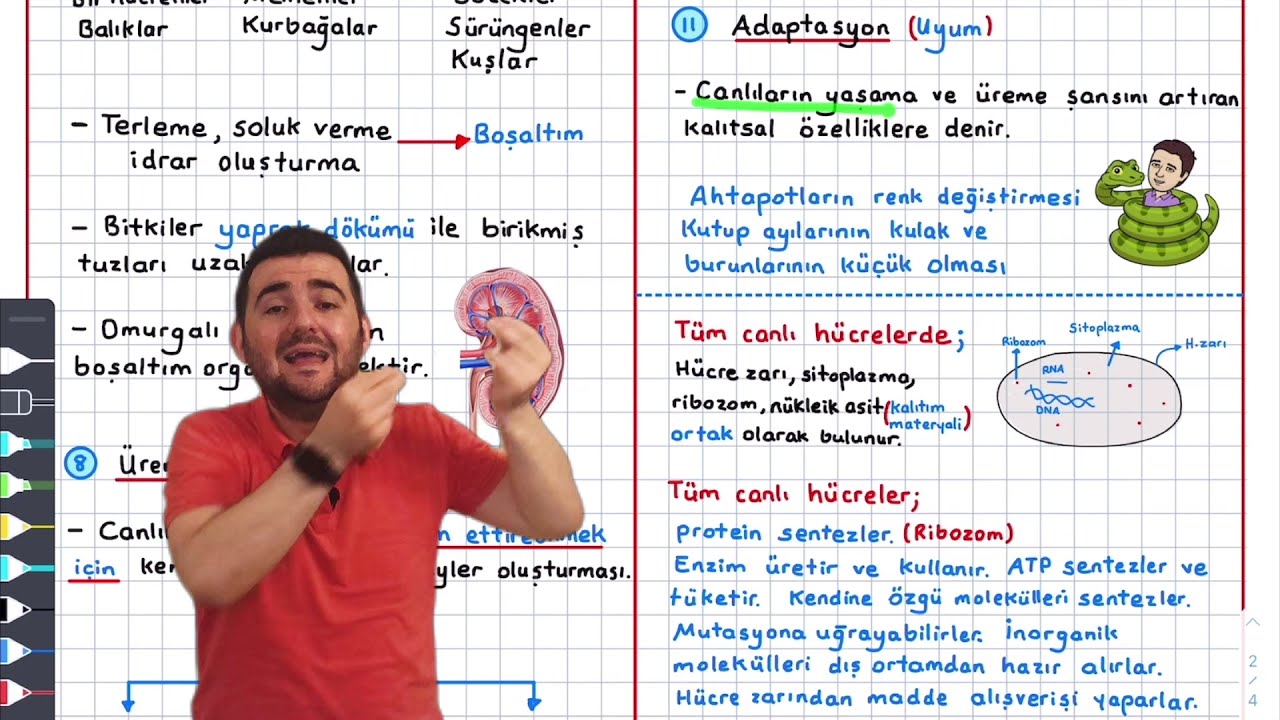 Balıklar
Kurbağalar
Sürüngenler
Kuşlar
- Terleme, soluk verme → Boşaltım
idrar oluşturma
- Bitkiler yaprak dökümü ile birikmiş
tuzları
- Omurgalı
boşaltım
8
- Canlı
için
oluşturması.
11 Adaptasyon (Uyum)
- Canlıların yaşama ve üreme şansını artıran
kalıtsal özelliklere denir.
Ahtapotların renk değiştirmesi
Kutup ayılarının kulak ve
burunlarının küçük olması
Tüm canlı hücrelerde;
Hücre zarı, sitoplazma,
ribozom, nükleik asit (kalıtım
materyali)
ortak olarak bulunur.
Ribozom
Sitoplazma
H-zarı
RNA
DNA
Tüm canlı hücreler;
Protein sentezler. (Ribozom)
Enzim üretir ve kullanır. ATP sentezler ve
tüketir. Kendine özgü molekülleri sentezler.
Mutasyona uğrayabilirler. İnorganik
molekülleri dış ortamdan hazır alırlar.
Hücre zarından madde alışverişi yaparlar.
2
/
4